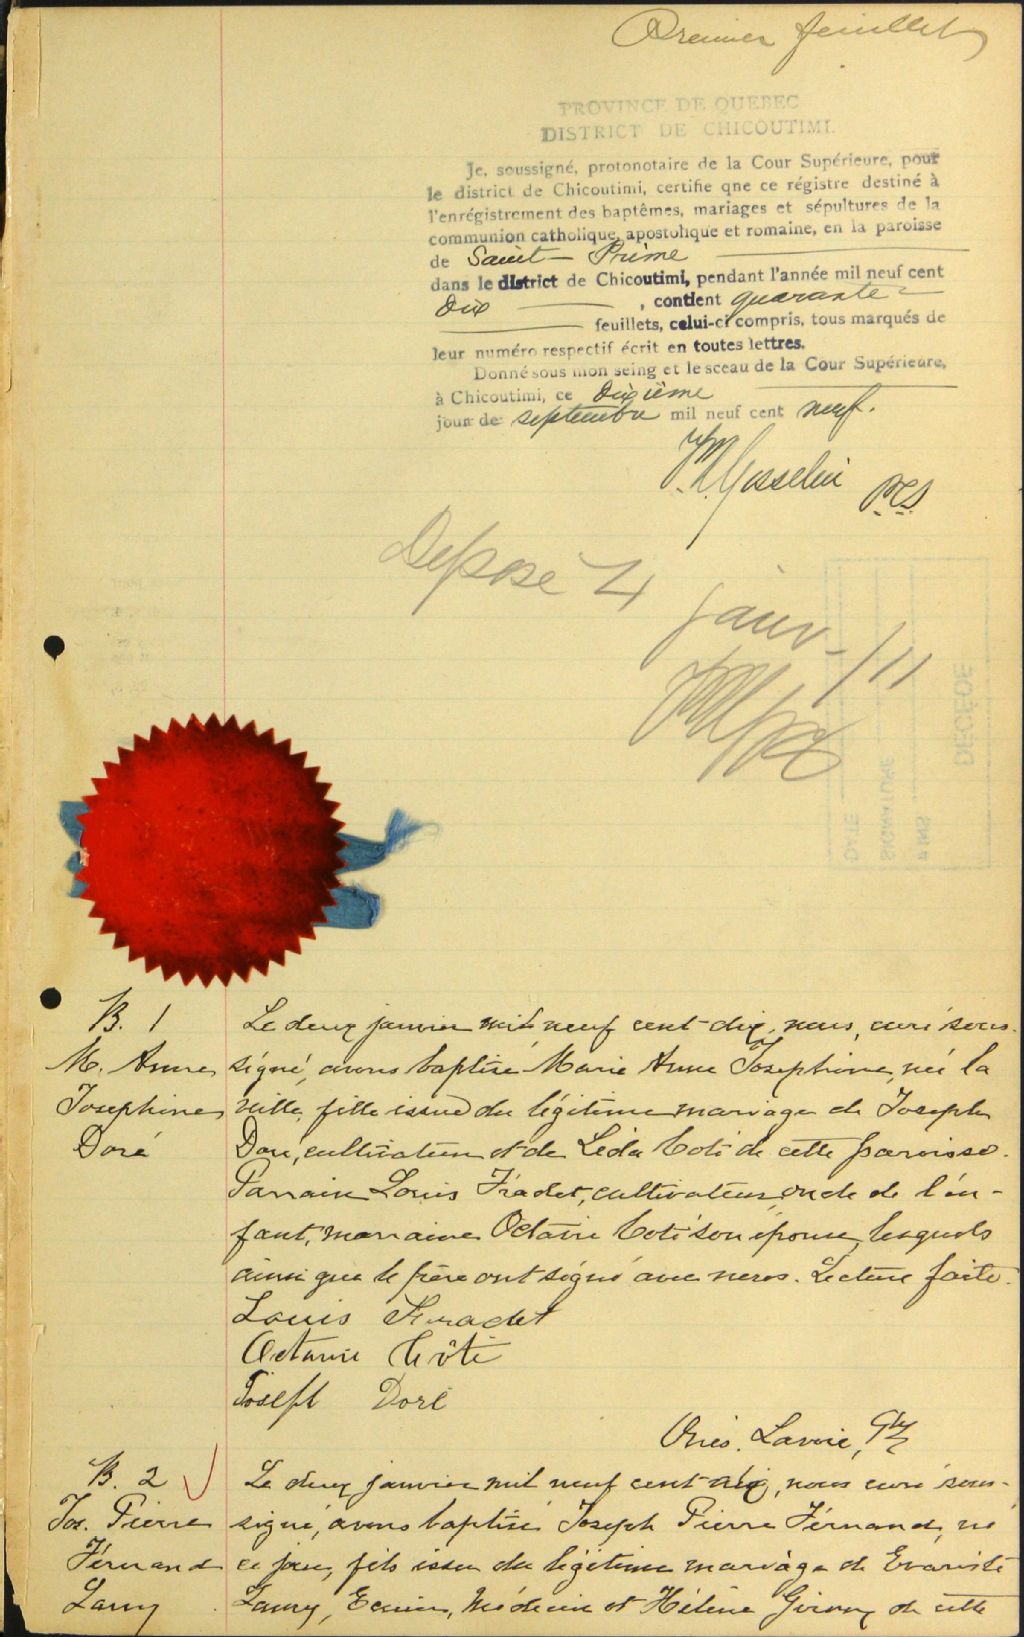 Premier feuillet
PROVINCE DE QUEBEC
DISTRICT DE CHICOUTIMI.
Je, soussigné, protonotaire de la Cour Supérieure, pour
le district de Chicoutimi, certifie qne ce régistre destiné à
l'enrégistrement des baptêmes, mariages et sépultures de la
communion catholique, apostolique et romaine, en la paroisse
de Saint-Prime
dans le district de Chicoutimi, pendant l'année mil neuf cent
dix, contient quarante
feuillets, celui-ci compris, tous marqués de
leur numéro respectif écrit en toutes lettres.
Donné sous mon seing et le sceau de la Cour Supérieure,
à Chicoutimi, ce dixième
jour de septembre mil neuf cent neuf.
Gosselin P.C.S.
Déposé 4 janv. /11
DÉCÉDÉ
DATE
SIGNATURE
# INS
B. 1
M. Anne
Josephine
Doré
Le deux janvier mil neuf cent dix, nous, curé sous-
signé, avons baptisé Marie Anne Josephine, née la
veille, fille issue du légitime mariage de Joseph
Doré, cultivateur et de Léda Coté de cette paroisse.
Parrain Louis Fradet, cultivateur, oncle de l'en-
fant, marraine Octavie Coté son épouse, lesquels
ainsi que le père ont signé avec nous. Lecture faite.
Louis Fradet
Octavie Côté
Joseph Doré
Onés. Lavoie, Ptre
B. 2
Jos. Pierre
Férnand
Lamy
Le deux janvier mil neuf cent dix, nous curé sous-
signé, avons baptisé Joseph Pierre Férnand, né
ce jour, fils issu du légitime mariage de Evariste
Lamy, Ecuier, Médecin et Hélène Giroux de cette